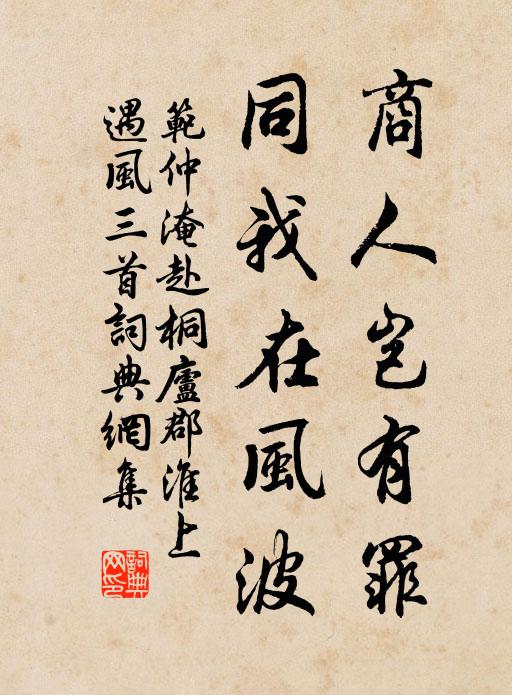 商人岂有罪
同我在風波
範仲淹赴桐廬郡淮上
遇風三首詞典網集
詞典
网印